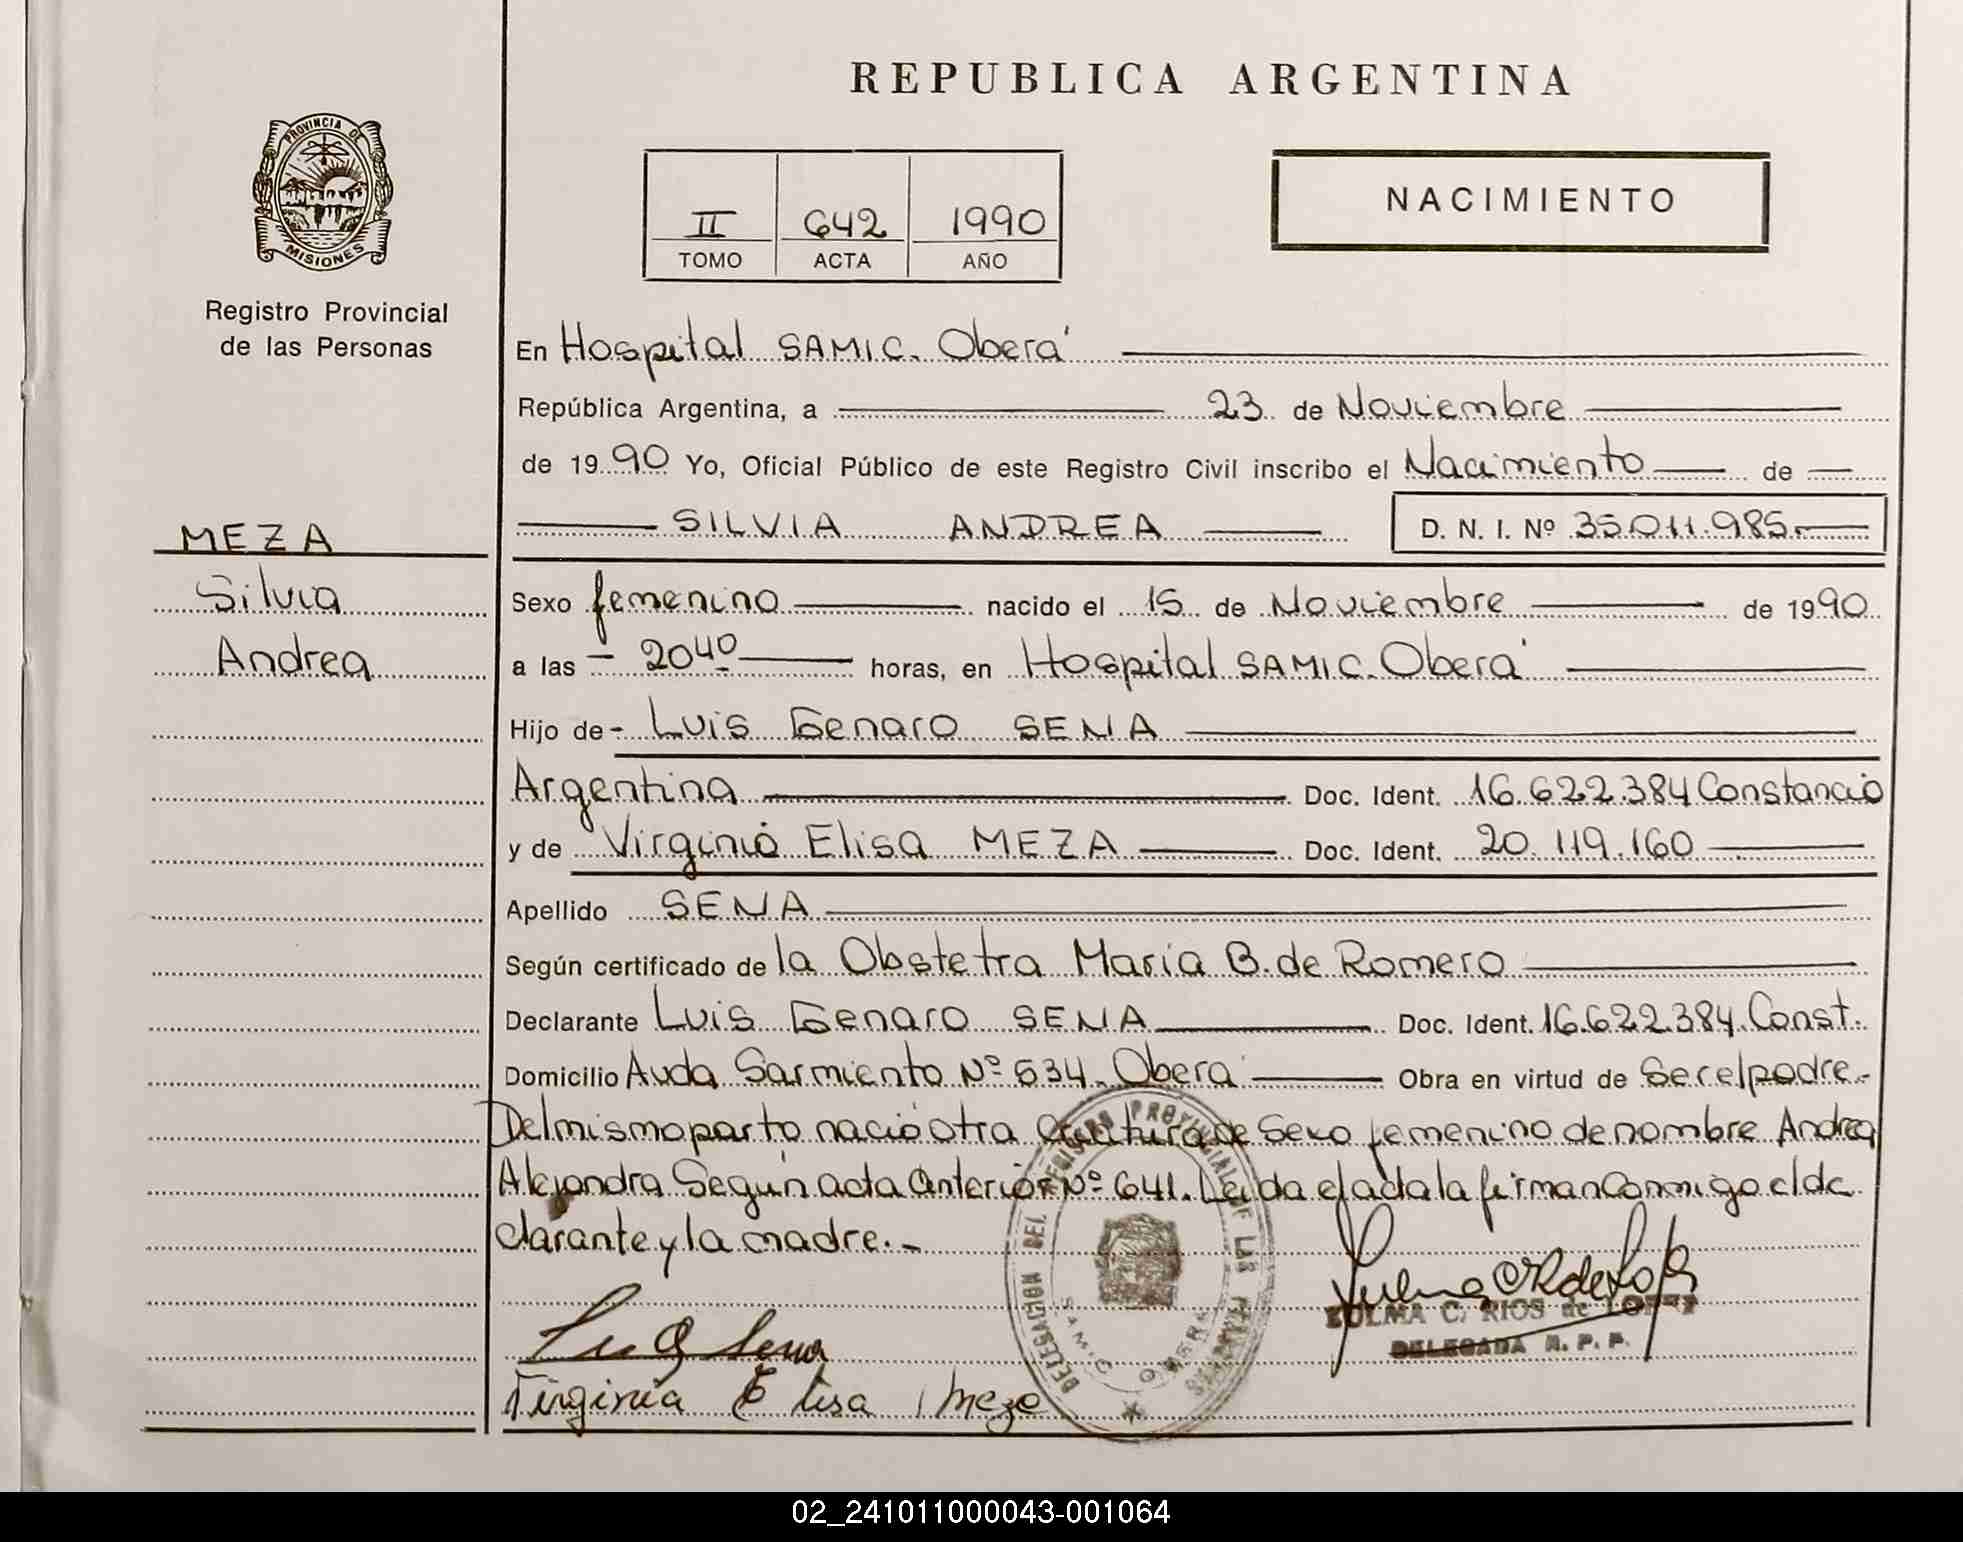 REPUBLICA ARGENTINA
PROVINCIA DE
MISIONES
Registro Provincial
de las Personas
II 642 1990
TOMO ACTA AÑO
NACIMIENTO
En Hospital SAMIC. Oberá
República Argentina, a 23 de Noviembre
de 1990 Yo, Oficial Público de este Registro Civil inscribo el Nacimiento de
SILVIA ANDREA D. N. I. Nº 35.011.985.-
MEZA
Silvia
Andrea
Sexo femenino nacido el 15 de Noviembre de 1990
a las - 20 40 horas, en Hospital SAMIC. Oberá
Hijo de - Luis Genaro SENA
Argentina Doc. Ident. 16.622.384 Constancia
y de Virginia Elisa MEZA Doc. Ident. 20.119.160
Apellido SENA
Según certificado de la Obstetra María B. de Romero
Declarante Luis Genaro SENA Doc. Ident. 16.622.384. Const.
Domicilio Avda Sarmiento Nº 534. Oberá Obra en virtud de Ser el padre.-
Del mismo parto nació otra Criatura de Sexo femenino de nombre Andrea
Alejandra Según acta anterior Nº 641. Leída el acta la firman Conmigo el de
clarante y la madre.-
DELEGACION DEL REGISTRO PROVINCIAL DE LAS PERSONAS
SAMIC OBERA
ZULMA C. RIOS de LOPEZ
DELEGADA R. P. P.
Virginia Elisa Meza
02_241011000043-001064